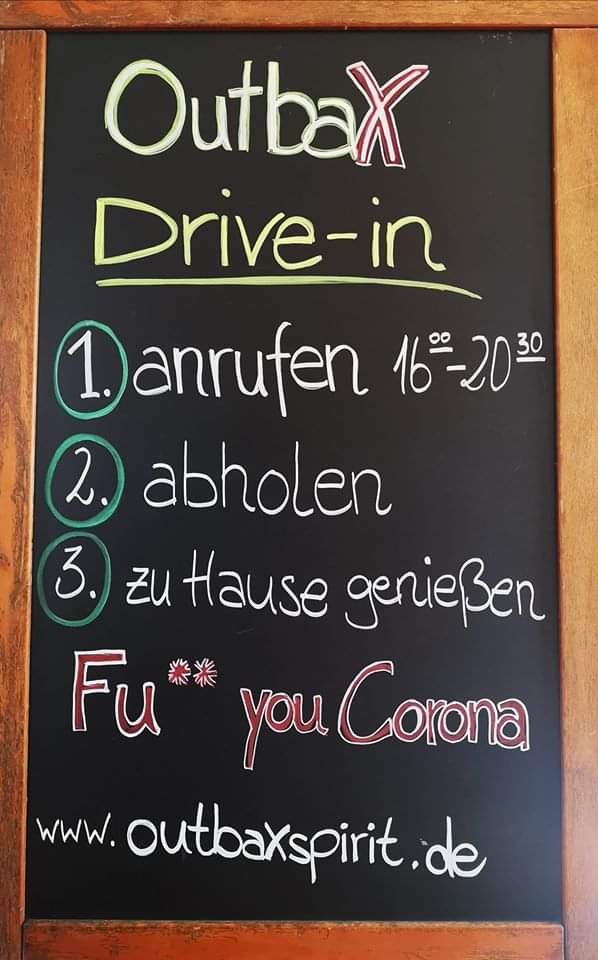 OutbaX
Drive-in
1. anrufen 16⁰⁰-20³⁰
2. abholen
3. zu Hause genießen
Fu** you Corona
www.outbaxspirit.de